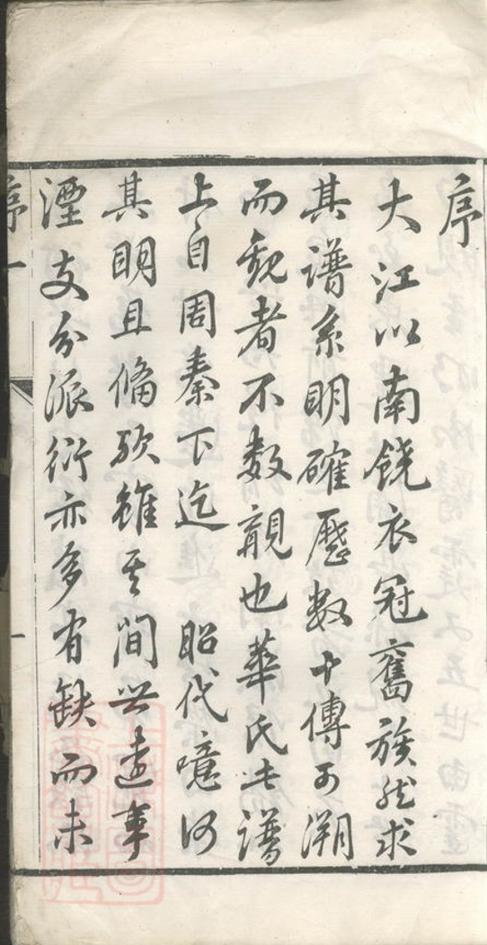 序
大江以南饒衣冠舊族然求
其譜系明確歷數十傳可溯
而觀者不數覯也華氏之譜
上自周秦下迄 昭代噫何
其明且偹欤雖其間世遠事
湮支分派衍亦多有缺而未
序 一